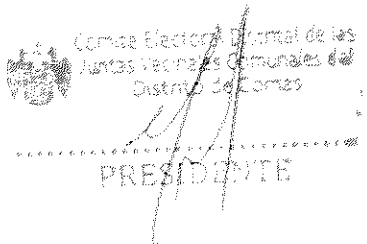 Comité Electoral Distrital de las
Juntas Vecinales Comunales del
Distrito de Comas
PRESIDENTE